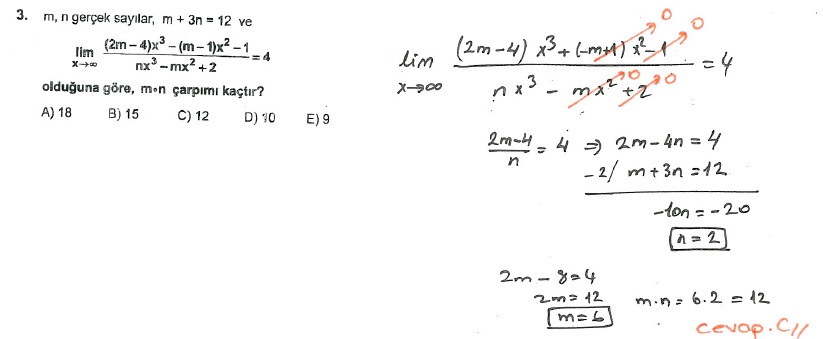 3. m, n gerçek sayılar, m + 3n = 12 ve
lim x→∞ (2m – 4)x³ – (m – 1)x² – 1 / nx³ – mx² + 2 = 4
olduğuna göre, m∘n çarpımı kaçtır?
A) 18 B) 15 C) 12 D) 10 E) 9
lim x→∞ (2m-4) x³ + (-m+1) x² - 1 / n x³ - mx² + 2 = 4
0 0
0 0
2m-4 / n = 4 ⇒ 2m - 4n = 4
-2/ m + 3n = 12
-10n = -20
n = 2
2m - 8 = 4
2m = 12 m.n = 6.2 = 12
m = 6
cevap.C//